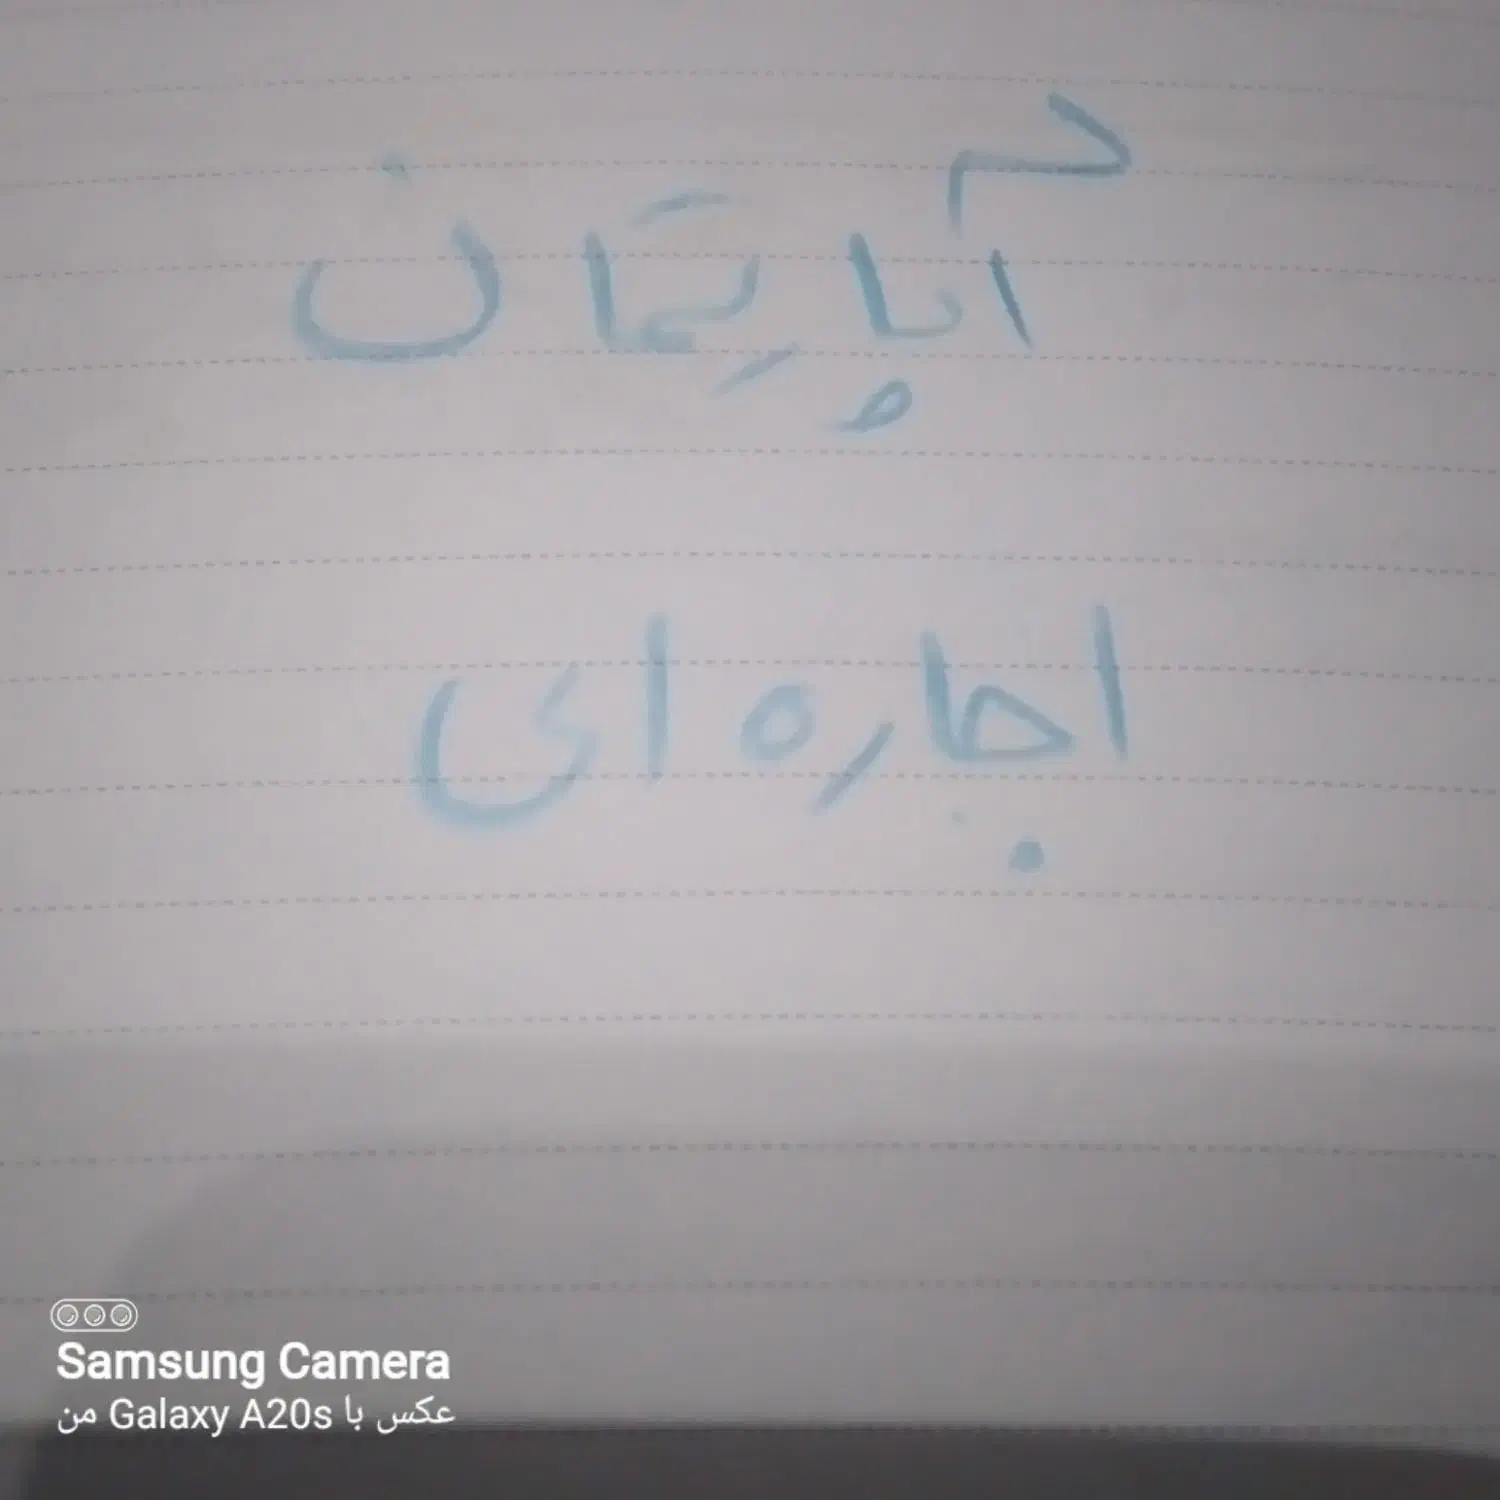 آپارتمان
اجاره ای
Samsung Camera
عکس با Galaxy A20s من